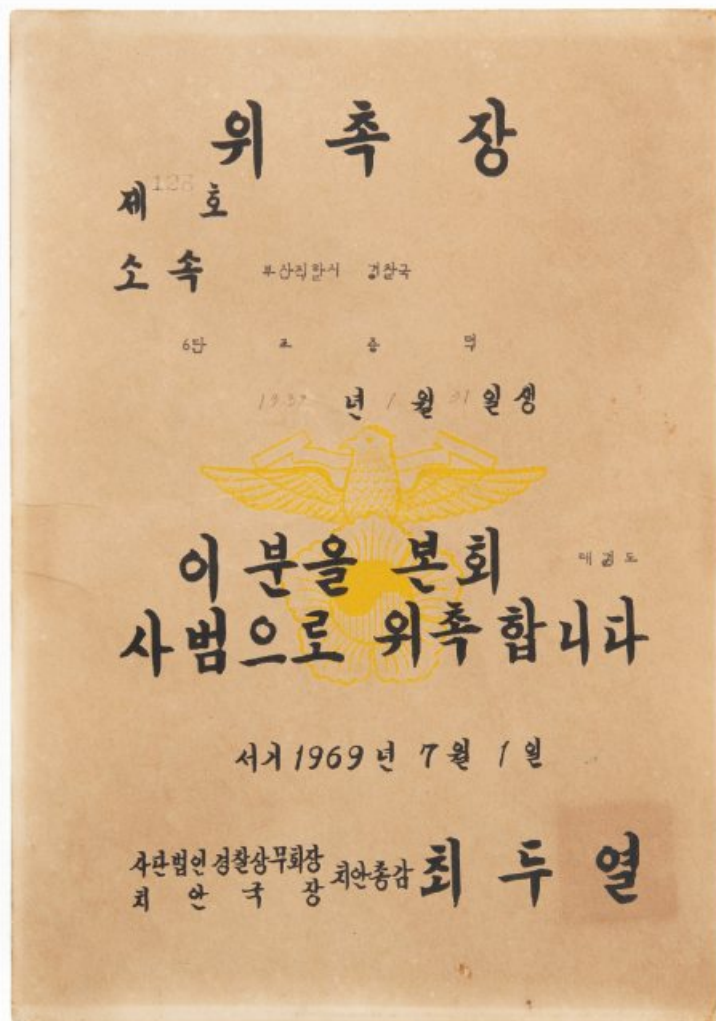 위 촉 장
제 128 호
소 속 부산직할시 경찰국
6단 조 증 덕
1937 년 1 월 31 일 생
이 분을 본회 태권도
사범으로 위촉합니다
서기 1969 년 7 월 1 일
사단법인 경찰상무회장
치 안 국 장 치안총감 최 두 열